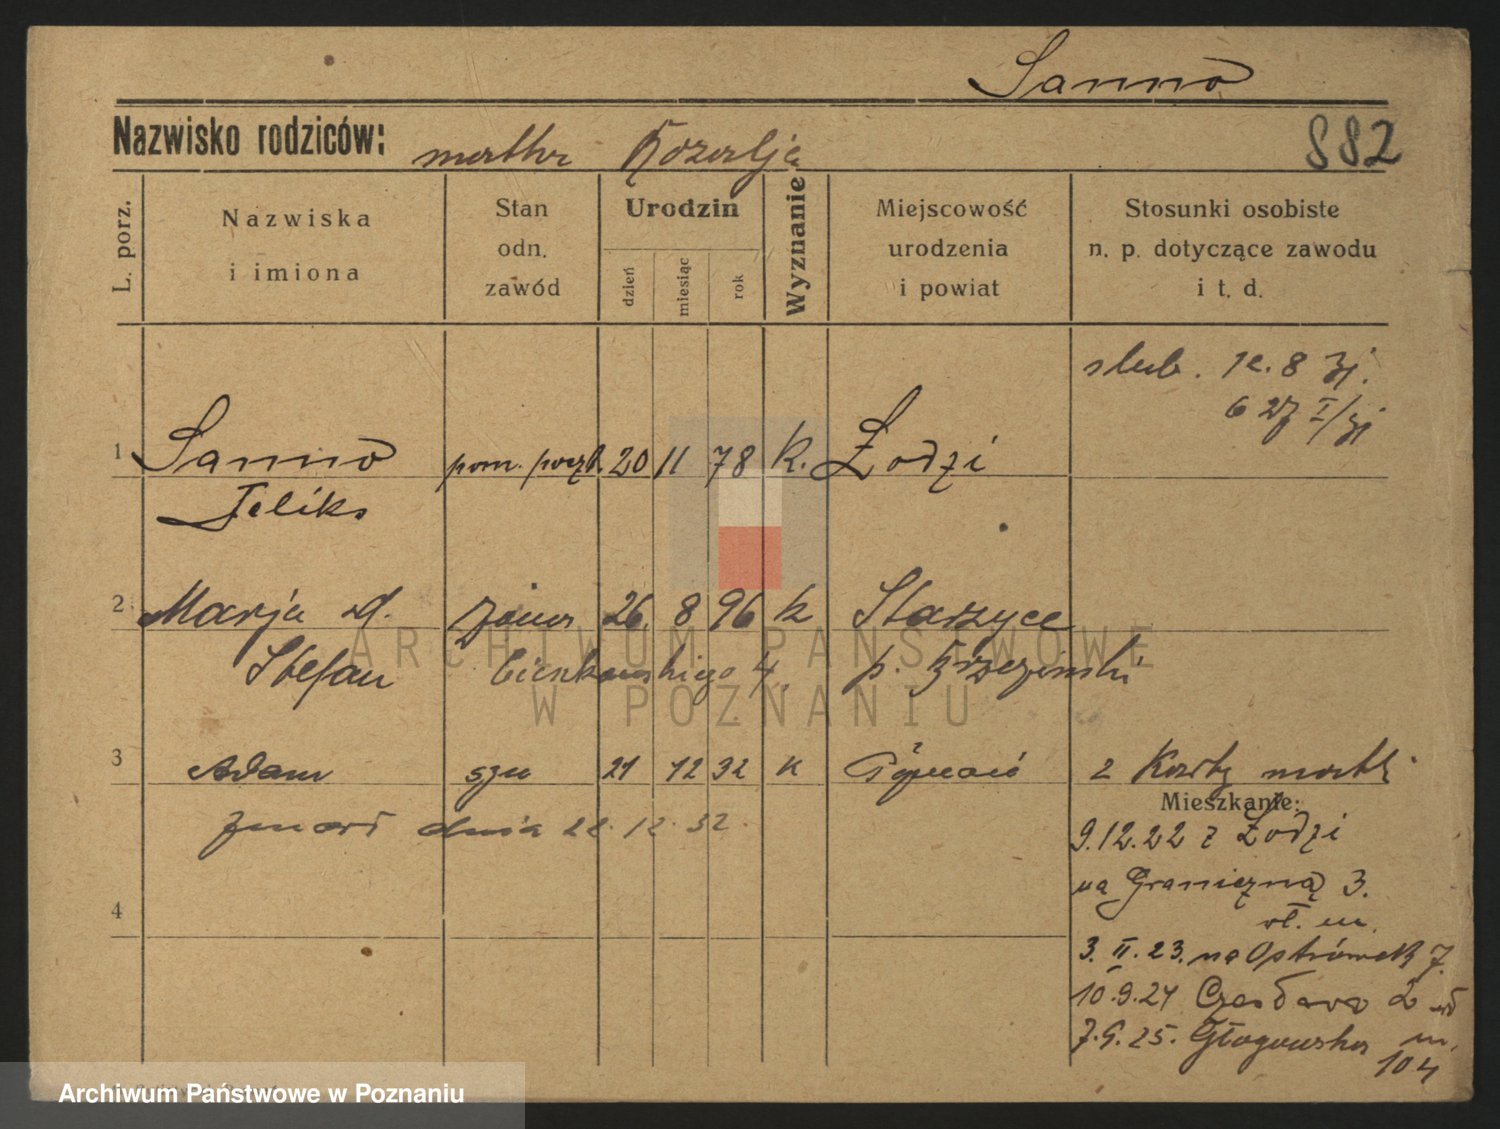 Sanno
Nazwisko rodziców: matka Rozalja
882
L. porz.
Nazwiska i imiona
Stan odn. zawód
Urodzin
dzień miesiąc rok
Wyznanie
Miejscowość urodzenia i powiat
Stosunki osobiste n. p. dotyczące zawodu i t. d.
ślub. 12.8
1 Sanno pom. 20 11 78 k. Łodzi
Feliks
2 Marja d. żona 26. 8 96 k Starzyce
Stefan Cieszkowskiego 4. p. Brzezinski
3 Adam syn 21 12 32 k Poznań 2 Karty
zmarł dnia 22.12.32
Mieszkanie:
9.12.22 z Łodzi
na Graniczną 3.
4
3.II.23. na Ostrówek 7.
10.9.24 Czesława 2
7.9.25. Głogowska
104
ARCHIWUM PAŃSTWOWE
W POZNANIU
Archiwum Państwowe w Poznaniu